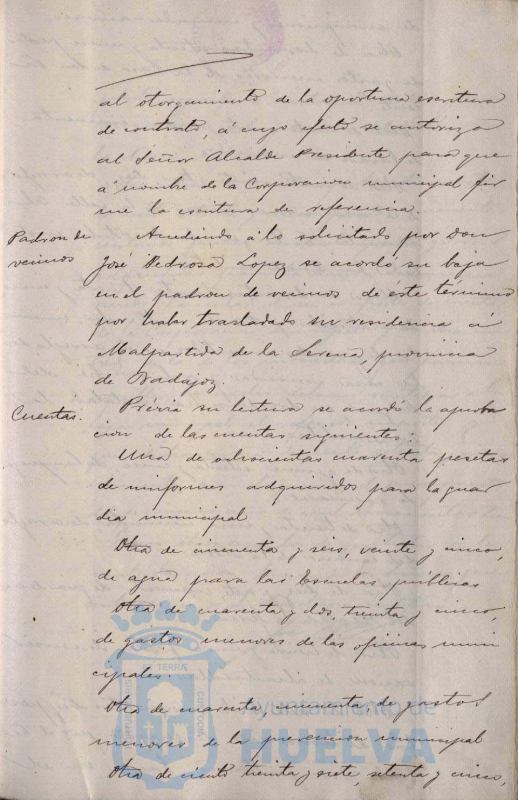 al otorgamiento de la oportuna escritura
de contrato, á cuyo efecto se autoriza
al Señor Alcalde Presidente para que
á nombre de la Corporacion municipal fir
me la escritura de referencia.
Padron de
vecinos
Accediendo á lo solicitado por Don
José Pedrosa Lopez se acordó su baja
en el padron de vecinos de éste término
por haber trasladado su residencia á
Malpartida de la Serena, provincia
de Badajoz.
Cuentas.
Prévia su lectura se acordó la aproba
cion de las cuentas siguientes:
Una de ochocientas cuarenta pesetas
de uniformes adquiridos para la guar
dia municipal
Otra de cincuenta y seis, veinte y cinco,
de agua para las Escuelas públicas
Otra de cuarenta y dos, treinta y cinco,
de gastos menores de las oficinas muni
cipales.
Otra de cuarenta, cincuenta, de gastos
menores de la prevencion municipal
Otra de ciento treinta y siete, setenta y cinco,
Ayuntamiento de
HUELVA
TERRÆ
CUSTODIA